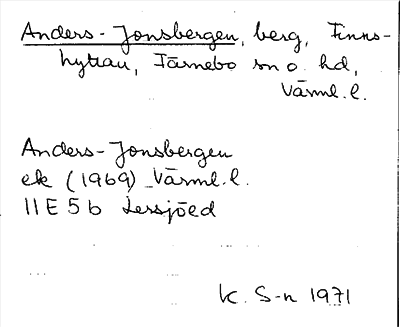 Anders-Jonsbergen, berg, Finns-
hyttan, Färnebo sn o. hd,
Värml. l.
Anders-Jonsbergen
ek (1969) Värml. l.
11E 5b Lessjöed
K. S-n 1971